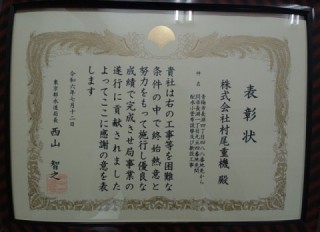 表彰状
株式会社村尾重機 殿
件名
貴社は右の工事等を困難な
条件の中で終始熱意と
努力をもって施行し優良な
成績で完成させ局事業の
遂行に貢献されました
よってここに感謝の意を表
します
令和六年七月十二日
東京都水道局長 西山 智之